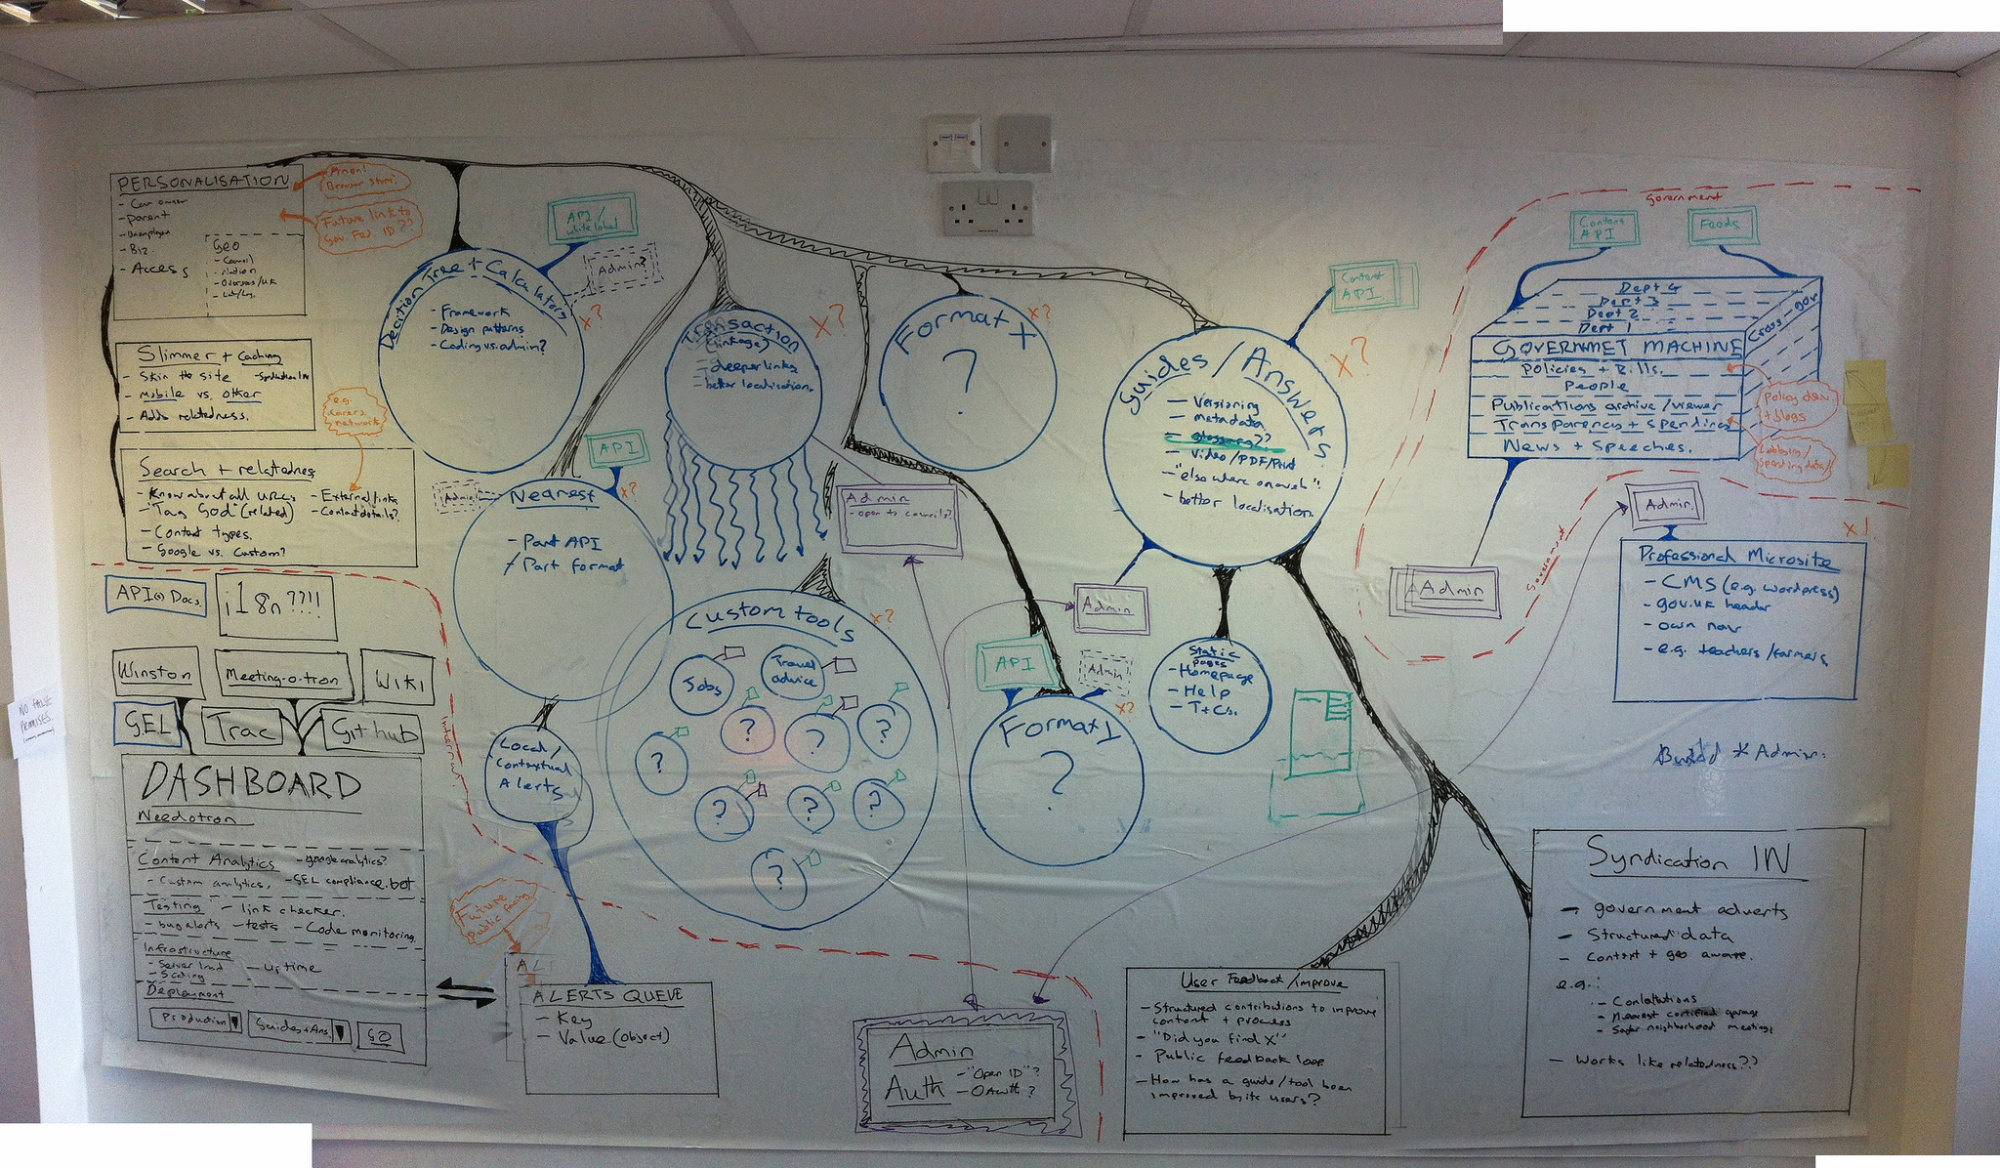 PERSONALISATION
- Car owner
- parent
- Unemployed
- Biz
- Access
Geo
- Council
- Nation
- Overseas/UK
Anon!
Browser
Future link to
Gov. Fed. ID??
Slimmer + Caching
- Skin the site
- Mobile vs. other
- Adds relatedness.
e.g.
careers
network
Search + relatedness
- Know about all URLs
- Tag God (related)
- Content types.
- Google vs. Custom?
- External links
- Contact details?
API(s) Docs.
i18n??!!
Winston
Meeting-o-tron
Wiki
GEL
Trac
Github
Internal
NO FALSE
PROMISES.
DASHBOARD
Needotron
Content Analytics
- google analytics?
- Custom analytics.
- GEL compliance.bot
Testing
- link checker.
- bug alerts
- tests
- Code monitoring.
Infrastructure
- Server load
- Uptime
- Scaling
Deployment
Production
Guides+Ans
GO
Decition Tree + Calculators
- Framework
- Design patterns
- Coding vs. admin?
API /
white label
Admin?
x?
Transaction
(linkage)
- deeper links
- better localisation.
x?
Format X
?
x?
Admin
- open to councils?
API
Admin
Nearest
x?
- Part API
/ Part format
Local/
Contextual
Alerts
Future
Public facing
ALERTS QUEUE
- Key
- Value (object)
Custom tools
x?
Jobs
Travel
advice
?
?
?
?
?
?
?
?
Guides/Answers
x?
- Versioning
- metadata
- glossary??
- Video/PDF/Print
- "elsewhere on web".
- better localisation
Content
API
Admin
API
Admin
x?
Format 1
?
Static
pages
- Homepage
- Help
- T+Cs.
Admin
Auth
- "Open ID"?
- OAuth?
User Feedback/improve
- Structured contributions to improve
content + process
- "Did you find X"
- Public feedback loop
- How has a guide/tool been
improved by its users?
Government
Content
API
Feeds
Dept 4
Dept 3
Dept 2
Dept 1
Cross-gov
GOVERNMET MACHINE
Policies + Bills.
People
Publications archive/viewer
Transparency + spending
News + Speeches.
Policy dev.
+ blogs
Lobbying/
Spending data/
Admin
Government
Admin.
x!
Professional Microsite
- CMS (e.g. wordpress)
- gov.uk header
- own nav
- e.g. teachers/farmers
Build * Admin.
Syndication IN
- government adverts
- Structured data
- Context + geo aware.
e.g.:
- Consultations
- Nearest certified garage
- Safer neighborhood meetings
- Works like relatedness??